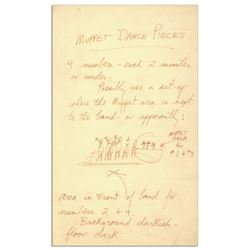 MUPPET DANCE PIECES
4 numbers - each 2 minutes
or under -
Possibly use a set-up
where the Muppet area is next
to the band - or apparently:
MUPPET
AREA
for
#1 & #3
area in front of band for
numbers 2 + 4.
Background darkish -
floor dark.